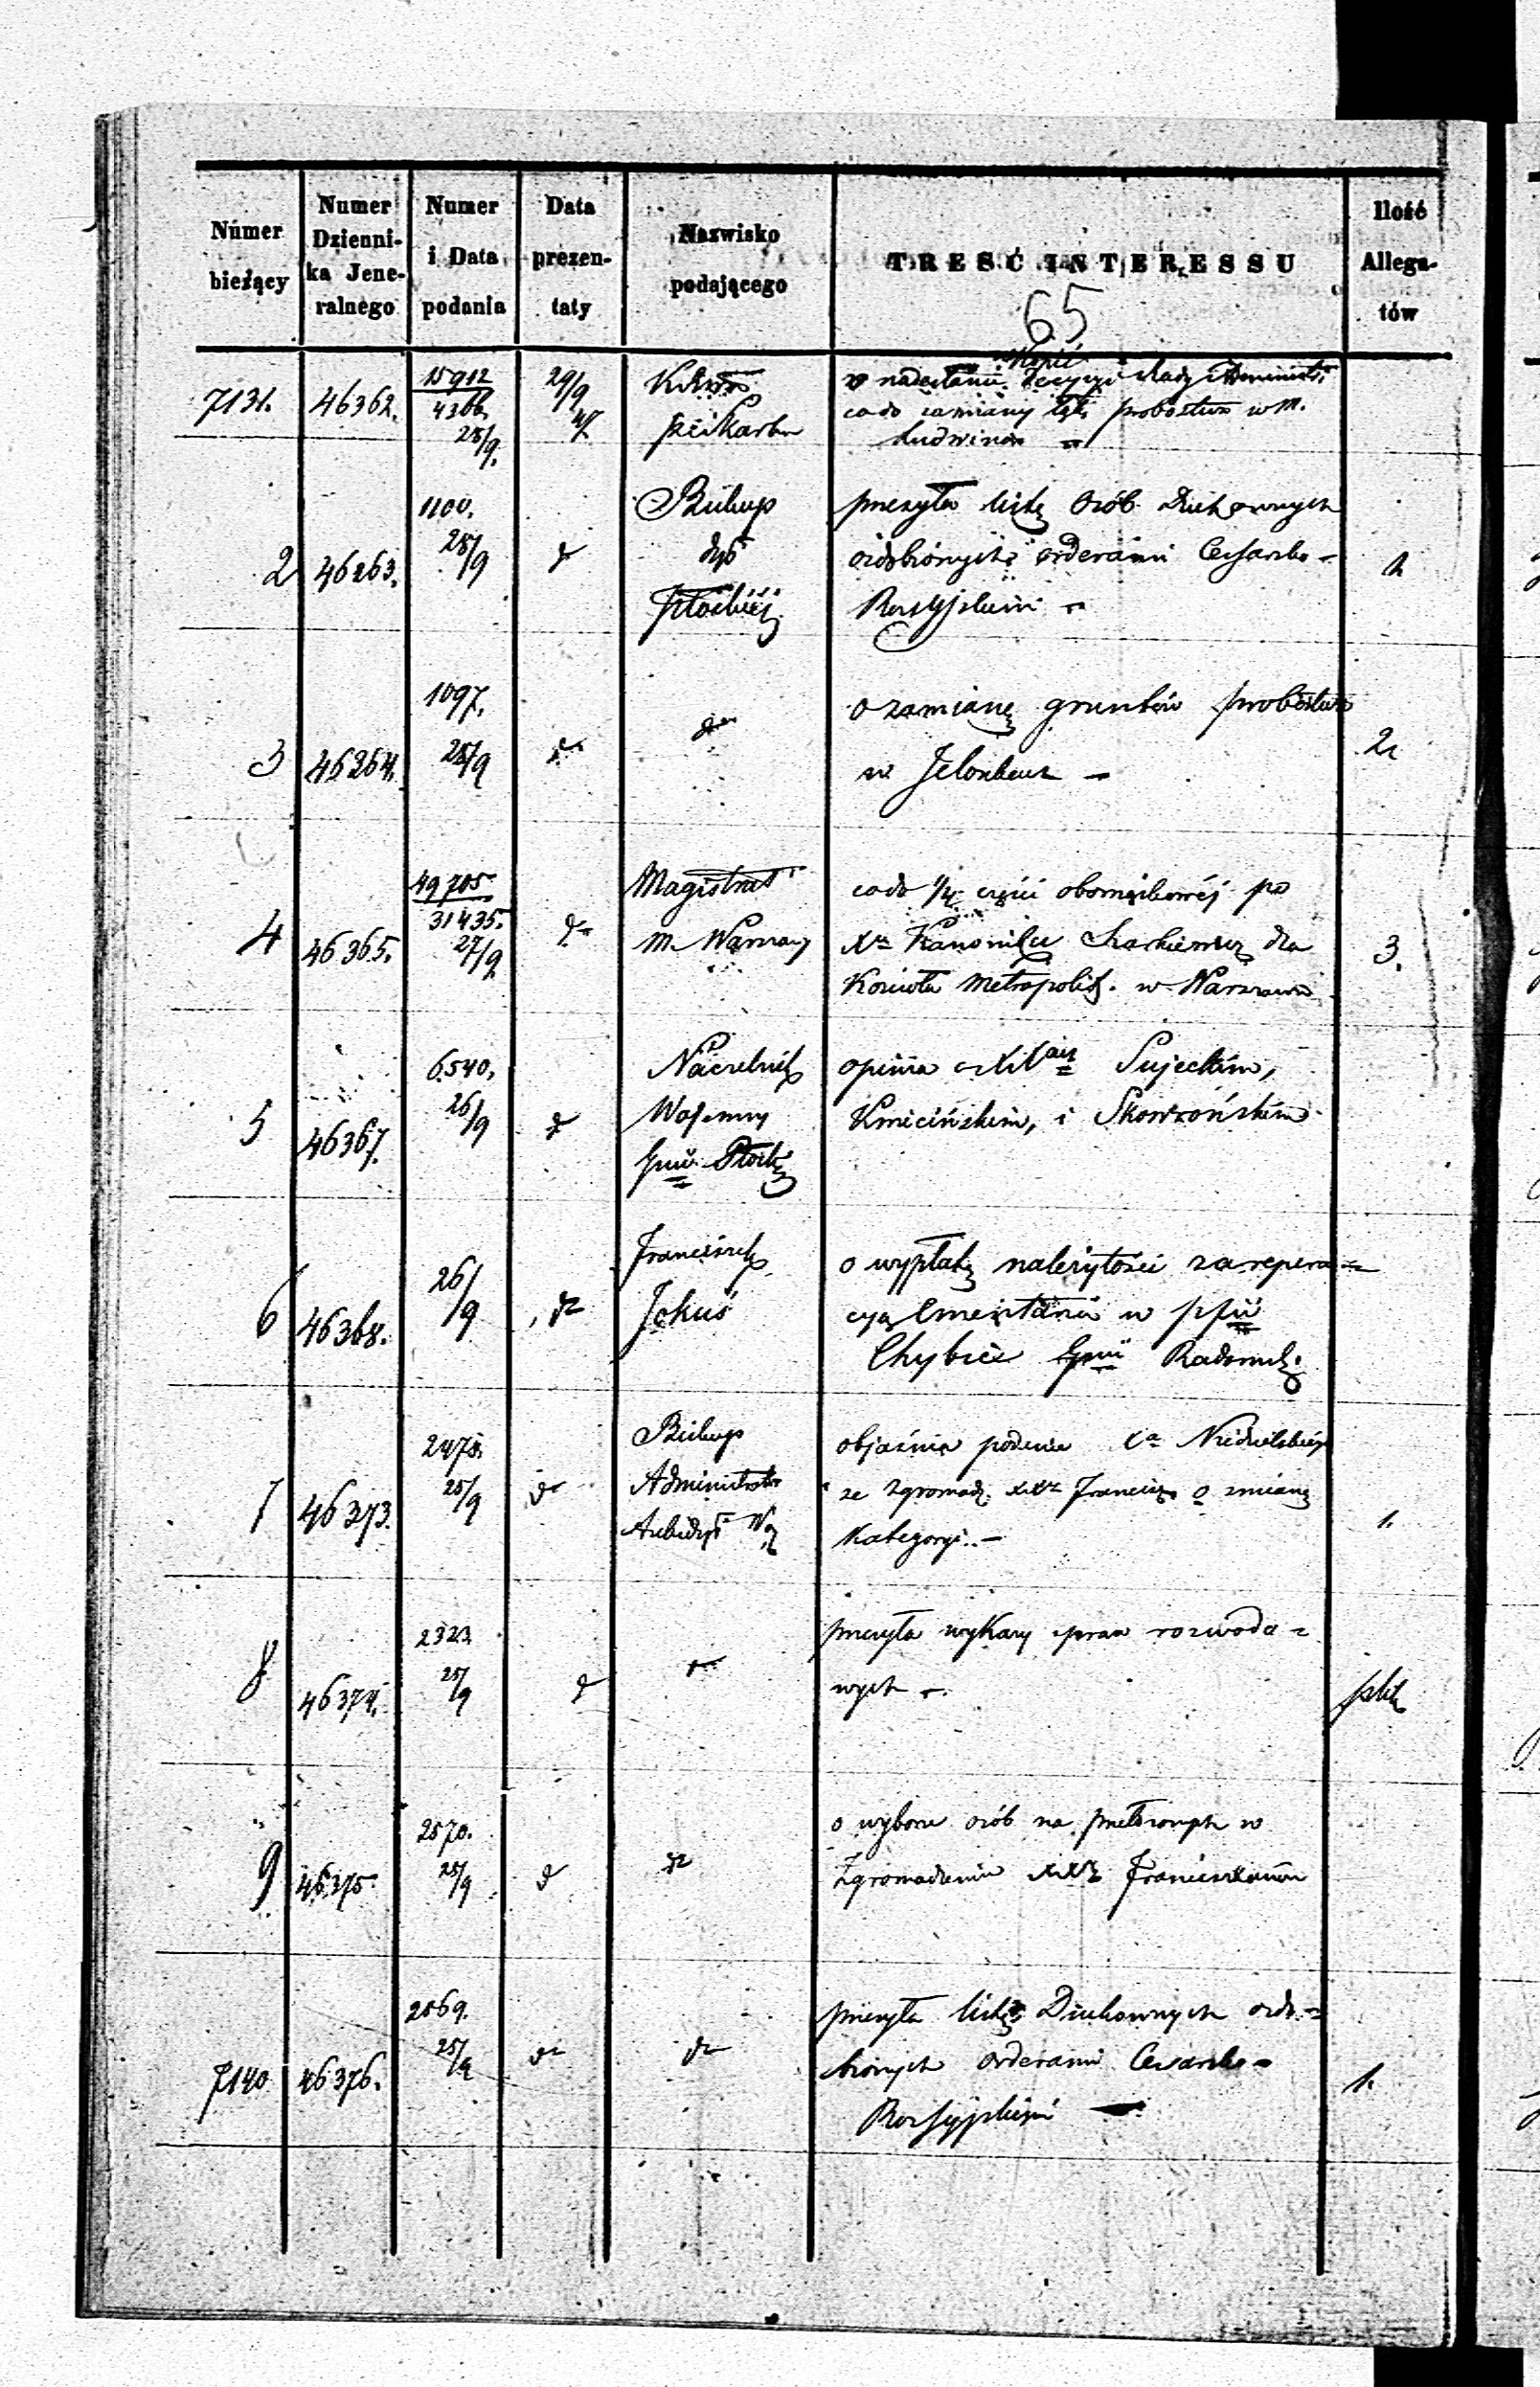 Numer bieżący | Numer Dziennika Jeneralnego | Numer i Data podania | Data prezentaty | Nazwisko podającego | TREŚĆ INTERESSU | Ilość Allegatów
65
7131. 46362. 15912 4366. 28/9. 29/9 Skarbu
o nadesłanie Kopii decyzyi Rady Administ.
co do zamiany łąk probostwa w m.
Ludwinow
2 46263. 1100. 28/9 d Biskup dyi Płockiéj
przesyła listę Osób Duchownych
ozdobionych orderami Cesarsko-
Rossyjskimi 1
3 46264. 1097. 28/9 d d
o zamianę gruntów probostwa
w Jelonkach 2
4 46365. 49705 31435. 27/9 d Magistrat m. Warszawy
co do 1/4 części po
Xu Kanoniku dla
Kościoła Metropolit. w Warszawie 3.
5 46367. 6540, 26/9 d Naczelnik Wojenny Guii Płock
opinia o XX Sujeckim,
Kmicińskim, i Skowrońskim
6 46368. 26/9 d Franciszek Jokuś
o wypłatę należytości za repera=
cyą Cmentarza w
Chybice Gnii Radomsk.
7 46373. 2478. 25/9 d Biskup Administrator Archidyi W
objaśnia podanie Xa
ze Zgromadz. XX Francisz. o zmianę
Kategoryi. 1.
8 46374. 2323 25/9 d
przesyła wykazy spraw rozwodo=
wych
9 46375 2570. 25/9 d d
o wyborze osób na przełożonych w
Zgromadzeniu XX Franciszkanów
7140 46376. 2569. 25/9 d d
przesyła listę Duchownych ozdo=
bionych orderami Cesarsko
Rossyjskimi 1.